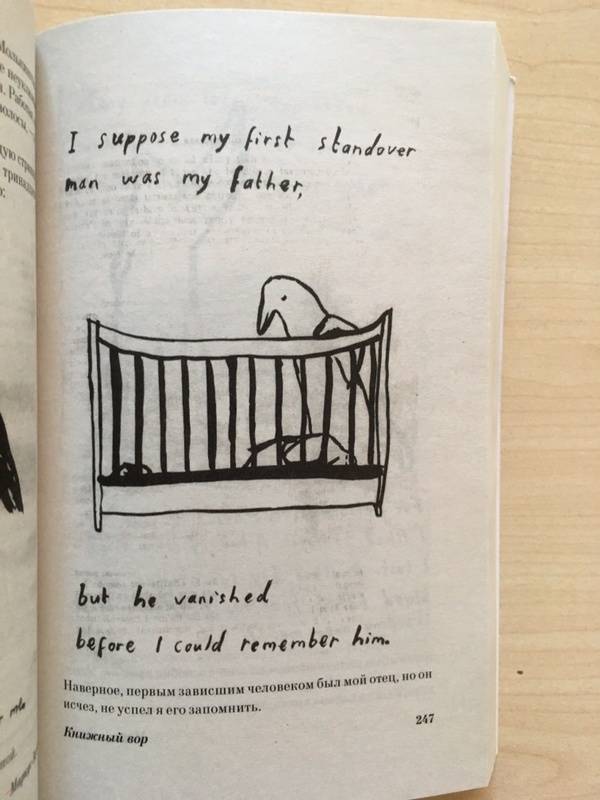 I suppose my first standover
man was my father,
but he vanished
before I could remember him.
Наверное, первым зависшим человеком был мой отец, но он
исчез, не успел я его запомнить.
247
Книжный вор